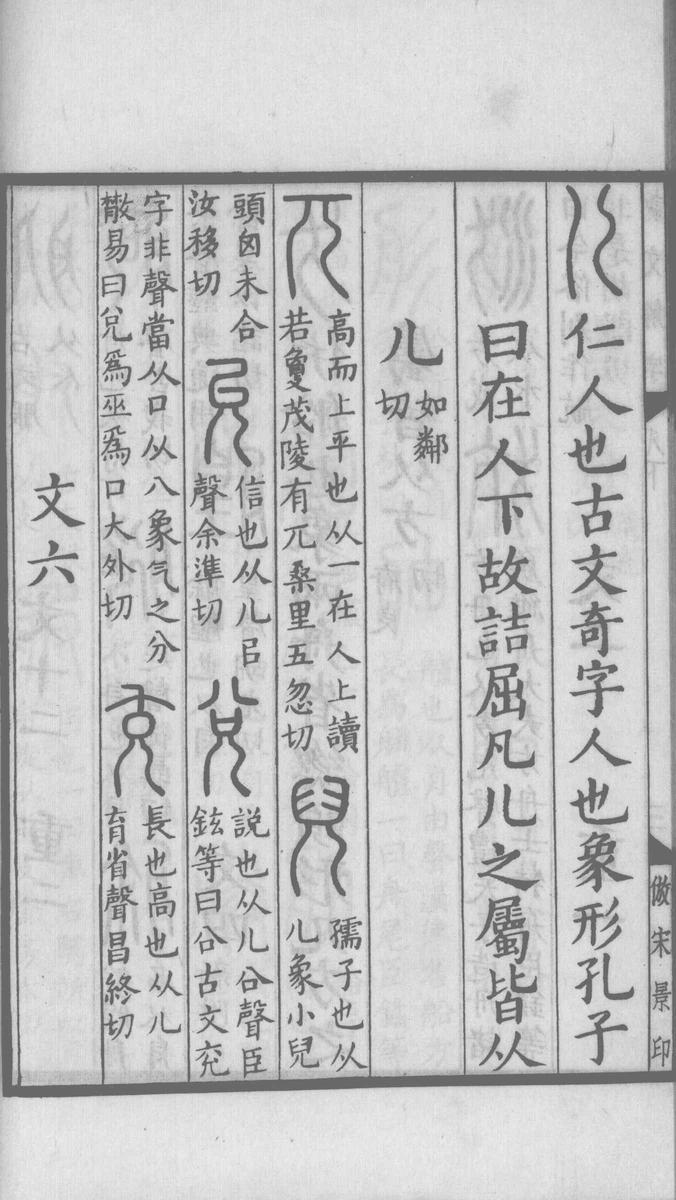 儿仁人也古文奇字人也象形孔子
曰在人下故詰屈凡儿之屬皆从
儿如鄰切
兀高而上平也从一在人上讀若敻茂陵有兀桑里五忽切兒孺子也从儿象小兒
頭囟未合汝移切兄信也从儿㠯聲余準切兌說也从儿㕣聲臣鉉等曰㕣古文兖
字非聲當从口从八象气之分㪔易曰兌爲巫爲口大外切充長也高也从儿育省聲昌終切
文六
倣宋景印